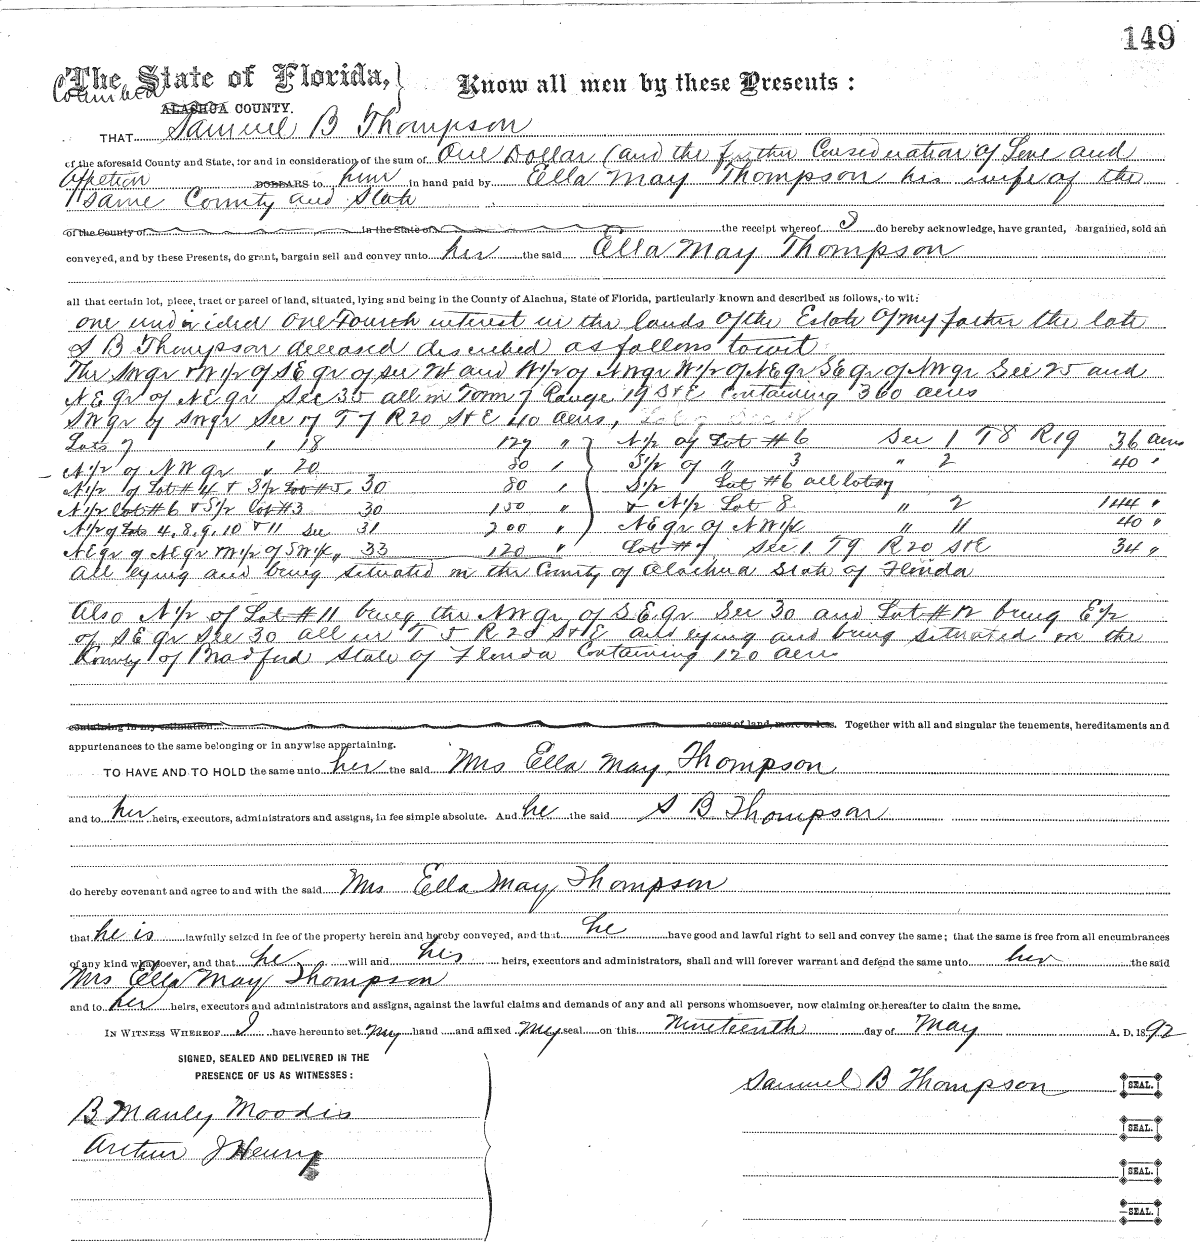 149
The State of Florida,} Know all men by these Presents:
Columbia
ALACHUA COUNTY.
THAT Samuel B Thompson
of the aforesaid County and State, for and in consideration of the sum of One Dollar (and the further Consideration of Love and
Affection DOLLARS to him in hand paid by Ella May Thompson his wife of the
same County and State
of the County of in the State of the receipt whereof I do hereby acknowledge, have granted, bargained, sold an
conveyed, and by these Presents, do grant, bargain sell and convey unto her the said Ella May Thompson
all that certain lot, piece, tract or parcel of land, situated, lying and being in the County of Alachua, State of Florida, particularly known and described as follows, to wit:
one undivided one Fourth interest in the lands of the Estate of my father the late
S B Thompson deceased described as follows towit
The SWqr & W½ of SEqr of Sec 24 and W½ of NWqr W½ of NEqr SEqr of NWqr Sec 25 and
NEqr of NEqr Sec 35 all in Town 7 Range 19 S&E Containing 360 acres
SWqr of SWqr Sec 17 T 7 R 20 S&E 40 acres,
Lots 7 " 18 127 " } N½ of Lot #6 Sec 1 T8 R19 36 acres
N½ of NWqr " 20 80 " S½ of " 3 " 2 40 "
N½ of Lot #4 & S½ Lot #5, 30 80 " S½ Lot #6 all lot 7
N½ lot #6 & S½ lot #3 30 150 " & N½ Lot 8 " 2 144 "
N½ of Lots 4, 8, 9, 10 & 11 Sec 31 200 " NEqr of NW¼ " 11 40 "
NEqr of NEqr W½ of SW¼ " 33 120 " Lot #7 Sec 1 T9 R20 S&E 34 "
All lying and being situated in the County of Alachua State of Florida
Also N½ of Lot #11 being the NWqr of SEqr Sec 30 and Lot #12 being E½
of SEqr Sec 30 all in T 5 R 20 S&E and lying and being situated in the
County of Bradford State of Florida Containing 120 acres
containing in my estimation acres of land, more or less. Together with all and singular the tenements, hereditaments and
appurtenances to the same belonging or in anywise appertaining.
TO HAVE AND TO HOLD the same unto her the said Mrs Ella May Thompson
and to her heirs, executors, administrators and assigns, in fee simple absolute. And he the said S B Thompson
do hereby covenant and agree to and with the said Mrs Ella May Thompson
that he is lawfully seized in fee of the property herein and hereby conveyed, and that he have good and lawful right to sell and convey the same; that the same is free from all encumbrances
of any kind whatsoever, and that he will and his heirs, executors and administrators, shall and will forever warrant and defend the same unto her the said
Mrs Ella May Thompson
and to her heirs, executors and administrators and assigns, against the lawful claims and demands of any and all persons whomsoever, now claiming or hereafter to claim the same.
IN WITNESS WHEREOF I have hereunto set my hand and affixed my seal on this Nineteenth day of May A. D. 1892
SIGNED, SEALED AND DELIVERED IN THE
PRESENCE OF US AS WITNESSES:
Samuel B Thompson SEAL.
B Manley Moodie
SEAL.
Arthur J Henry
SEAL.
SEAL.